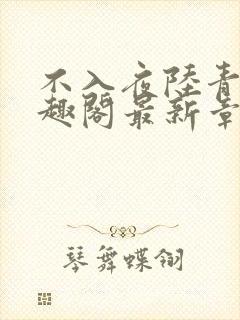 不入夜陸青
趣閣最新章
琴舞蝶翎